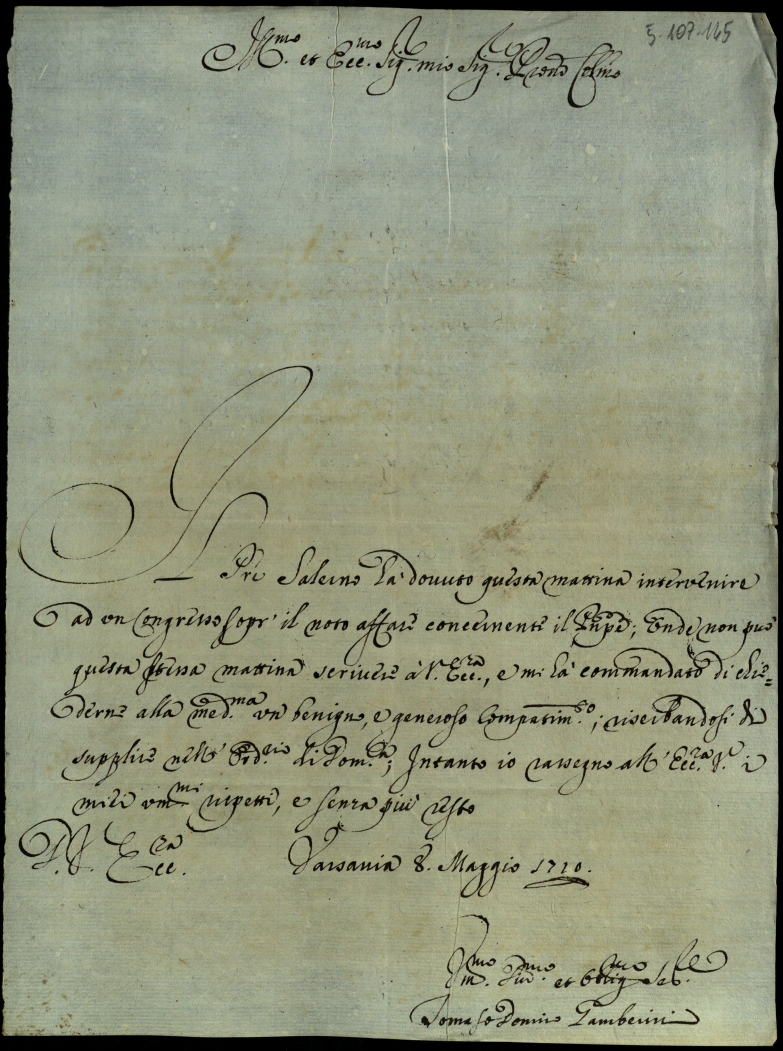 5-107-145
Ill.mo et Ecc.mo Sig.r mio Sig.r e Pron̄e Col̄mo
Il Prē Salerno há dovuto questa mattina intervenire
ad un Congresso sopr' il noto affare concernente il ; onde non può
questa stessa mattina scrivere à V. Ecc.za, e mi há commandato di chie=
derne alla med.ma un benigno, e generoso Compatim.to; riserbandosi di
supplire nell' Ord.rio di Dom.ca; Intanto io rassegno all' Ecc.za V.a i
miei um.mi rispetti, e senza più resto
D. V. Ecc.za
Varsavia 8. Maggio 1710.
Um.mo Div.mo et Oblig.mo Se.re
Tomaso Tamberini